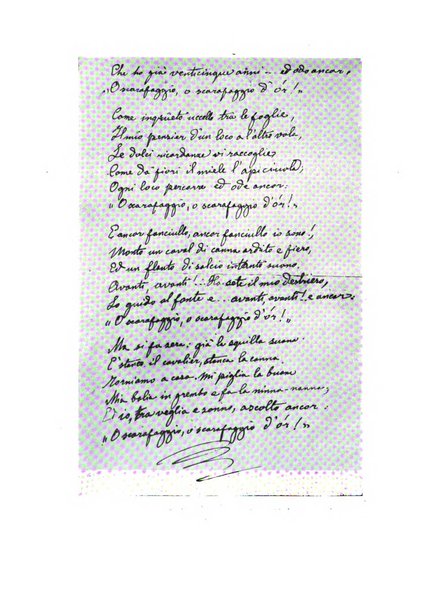 Che ho già venticinque anni... ed odo ancor,
"O scarafaggio, o scarafaggio d'ór!"
Come inquieto uccello tra le foglie,
Il mio pensier d'un loco a l'altro vola,
Le dolci ricordanze vi raccoglie
Come da fiori il miele l'apicciuola,
Ogni loco percorre ed ode ancor:
"O scarafaggio, o scarafaggio d'ór!"
E ancor fanciullo, ancor fanciullo io sono!
Monto un caval di canna ardito e fiero,
Ed un flauto di salcio intanto suono.
Avanti, avanti!... Ha sete il mio destriero,
Lo guido al fonte e... avanti, avanti! e ancor:
"O scarafaggio, o scarafaggio d'ór!"
Ma si fa sera: già la squilla suona
È stanco il cavalier, stanca la canna.
Torniamo a casa. Mi piglia la buona
Mia balia in grembo e fa la ninna-nanna,
Ed io, tra veglia e sonno, ascolto ancor:
"O scarafaggio, o scarafaggio d'ór!"